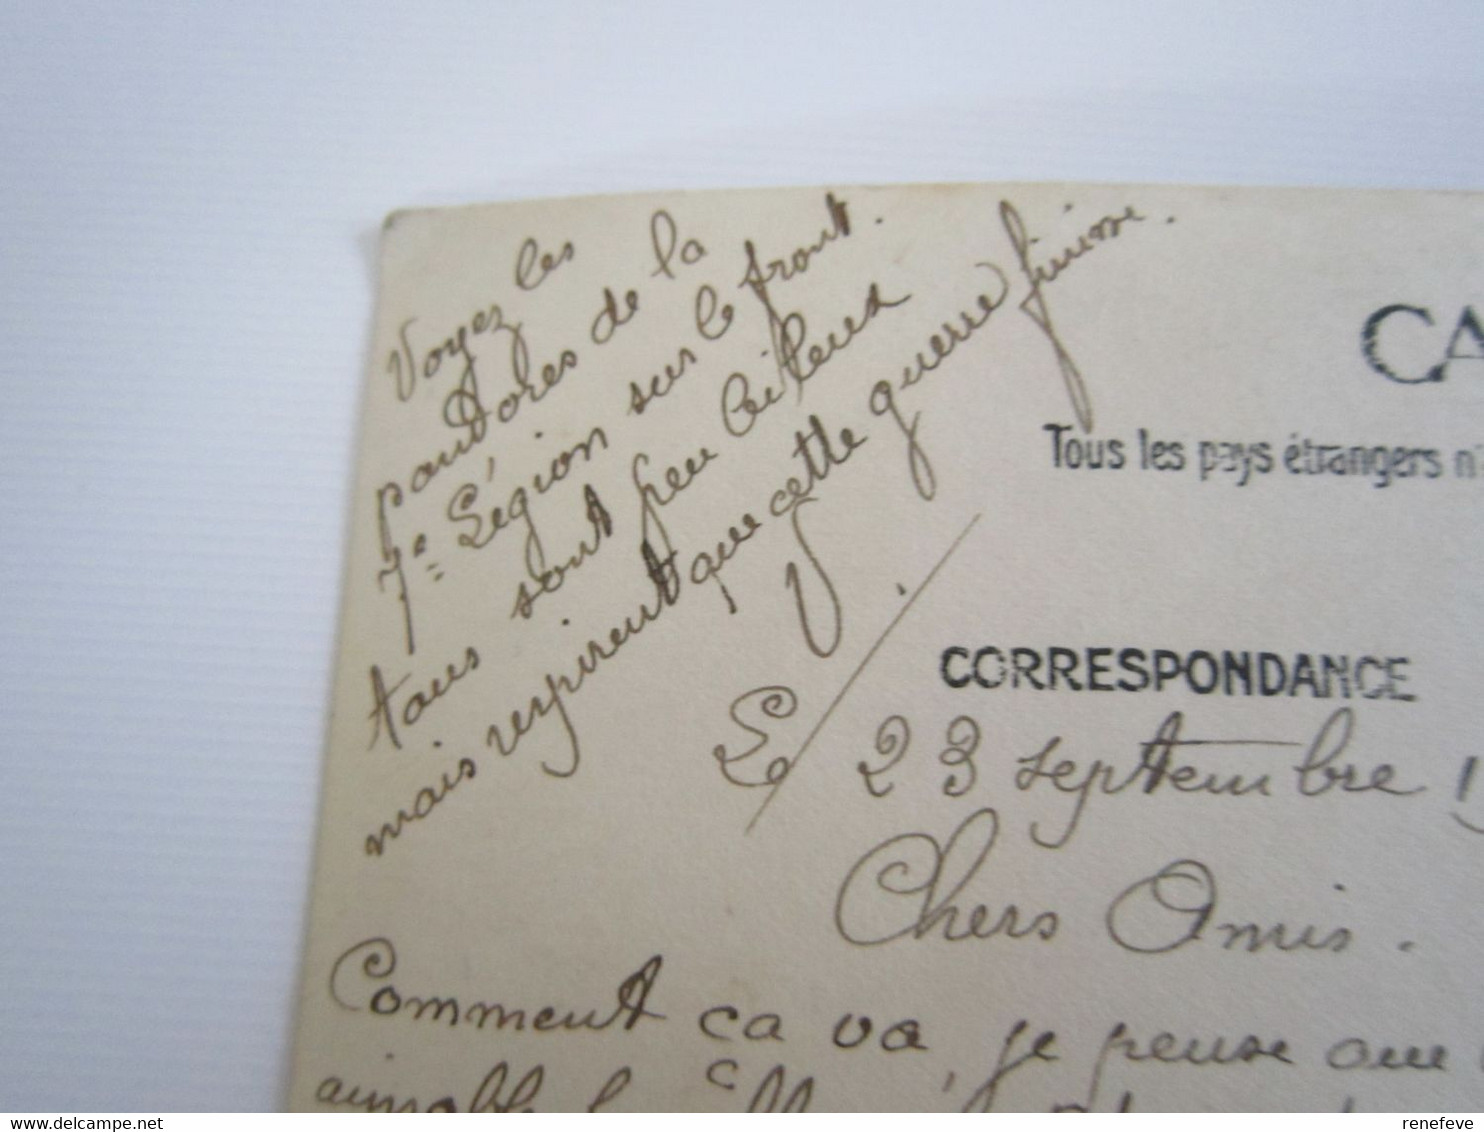 Voyez les
pandores de la
7e Légion sur le front.
tous sont peu
mais respirent que cette guerre finisse.
CA
Tous les pays étrangers n'
CORRESPONDANCE
23 septembre 19
Chers Amis.
Comment ça va, je pense que
renefeve